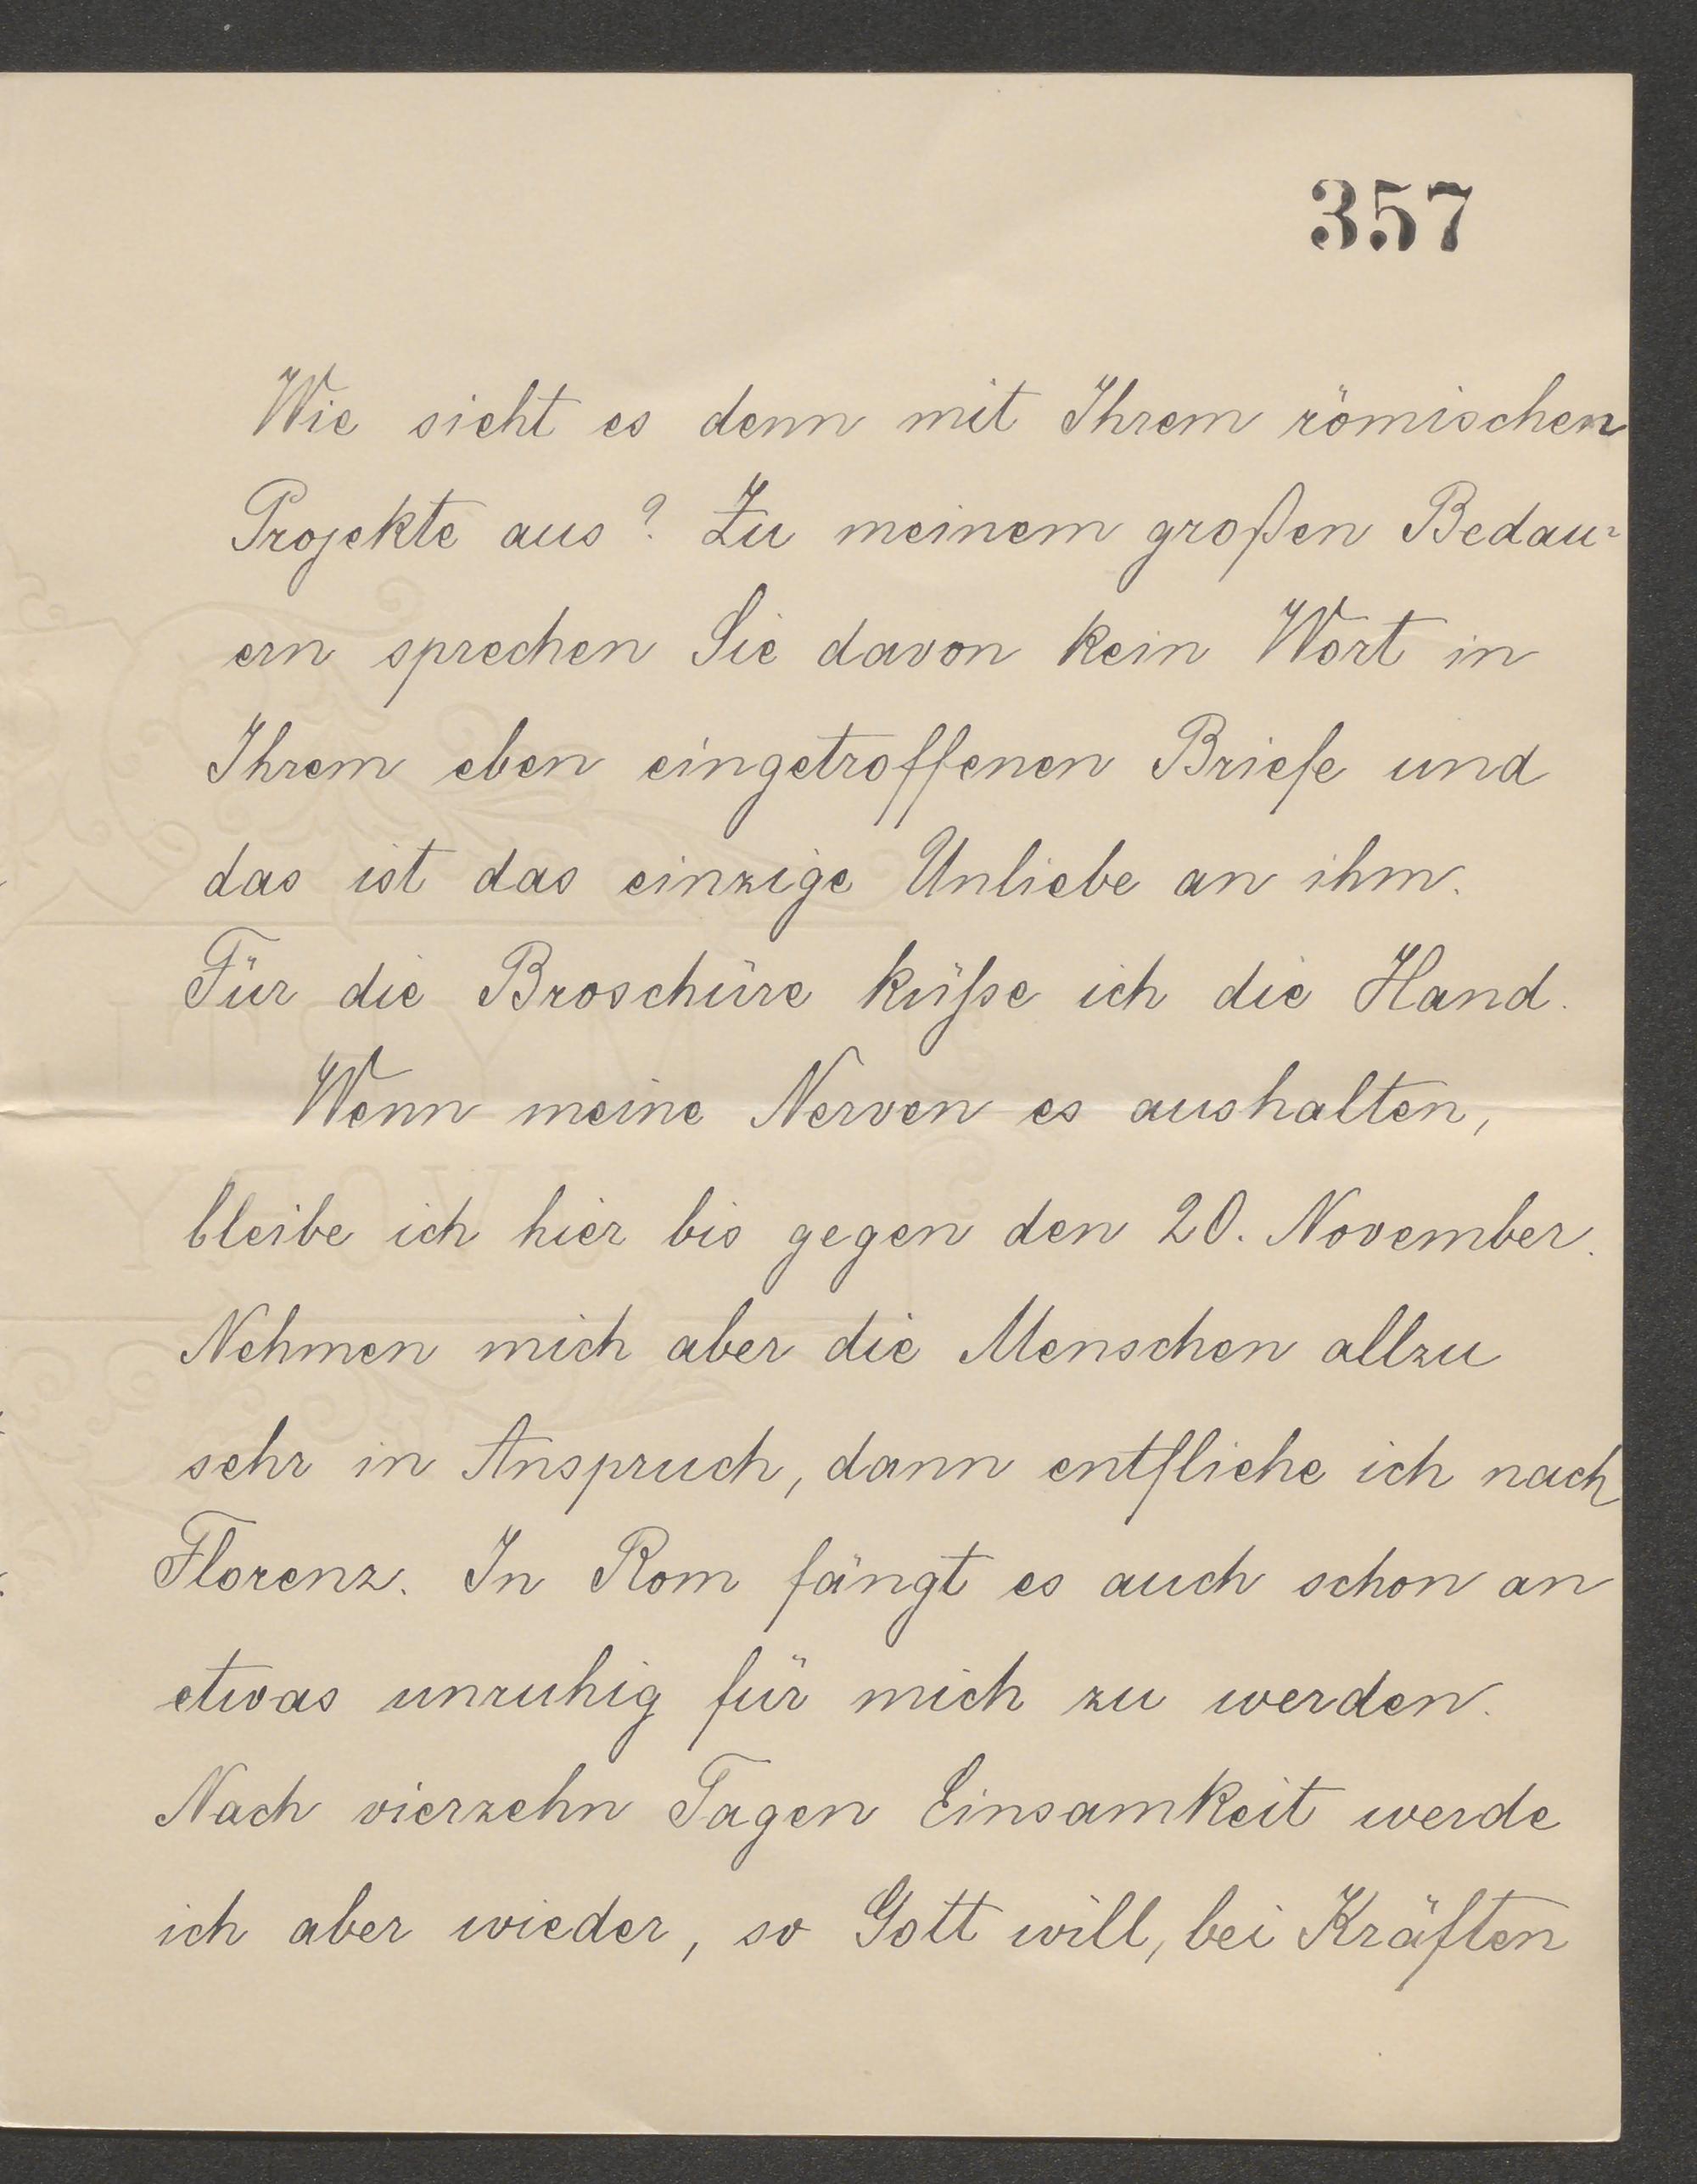 357
Wie sieht es denn mit Ihrem römischen
Projekte aus? Zu meinem großen Bedau-
ern sprechen Sie davon kein Wort in
Ihrem eben eingetroffenen Briefe und
das ist das einzige Unliebe an ihm.
Für die Broschüre küsse ich die Hand.
Wenn meine Nerven es aushalten,
bleibe ich hier bis gegen den 20. November.
Nehmen mich aber die Menschen allzu
sehr in Anspruch, dann entfliehe ich nach
Florenz. In Rom fängt es auch schon an
etwas unruhig für mich zu werden.
Nach vierzehn Tagen Einsamkeit werde
ich aber wieder, so Gott will, bei Kräften